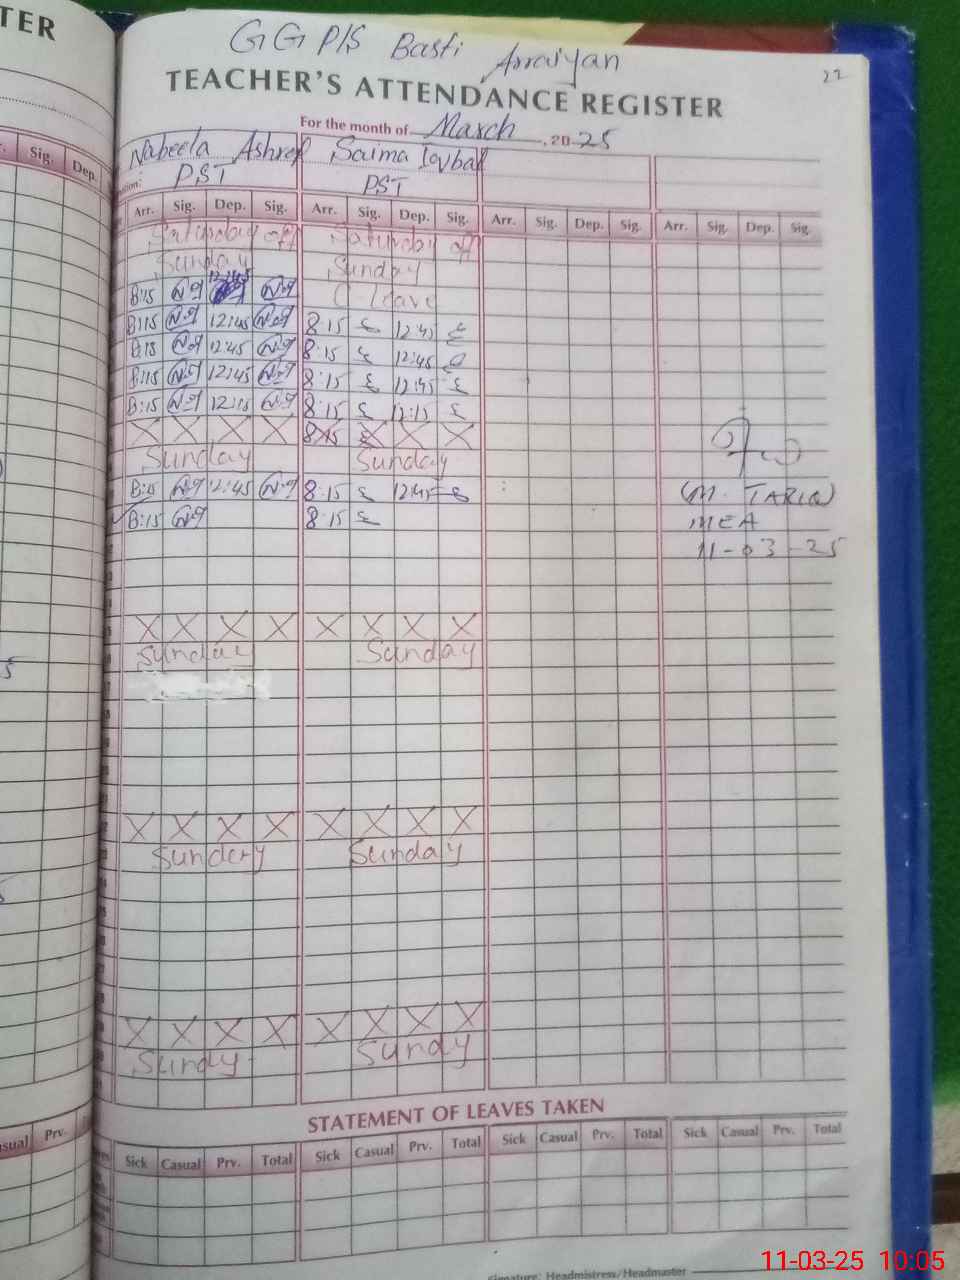 TER
GGP/S Basti Arraiyan
22
TEACHER'S ATTENDANCE REGISTER
For the month of March, 2025
Nabeela Ashraf Saima Iqbal
PST PST
Sig. Dep. Arr. Sig. Dep. Sig. Arr. Sig. Dep. Sig. Arr. Sig. Dep. Sig. Arr. Sig. Dep. Sig.
Saturday off Saturday off
Sunday Sunday
8:15 12:45 C leave
8:15 12:45 8:15 12:45
8:15 12:45 8:15 12:45
8:15 12:45 8:15 12:45
8:15 12:15 8:15 12:15
X X X X 8:15 X X X
Sunday Sunday
8:15 12:45 8:15 12:45
(M. TARIQ)
8:15 8:15
MEA
11-03-25
X X X X X X X X
Sunday Sunday
X X X X X X X X
Sundery Sunday
X X X X X X X X
Sundy Sundy
STATEMENT OF LEAVES TAKEN
Prv. Sick Casual Prv. Total Sick Casual Prv. Total Sick Casual Prv. Total Sick Casual Prv. Total
Signature: Headmistress/Headmaster
11-03-25 10:05